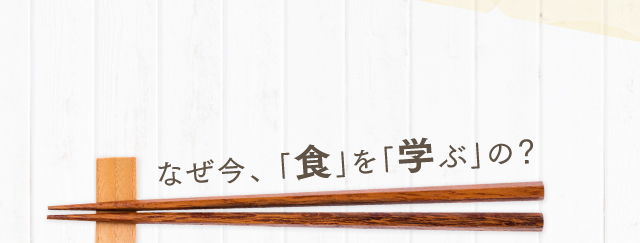 なぜ今、「食」を「学ぶ」の？